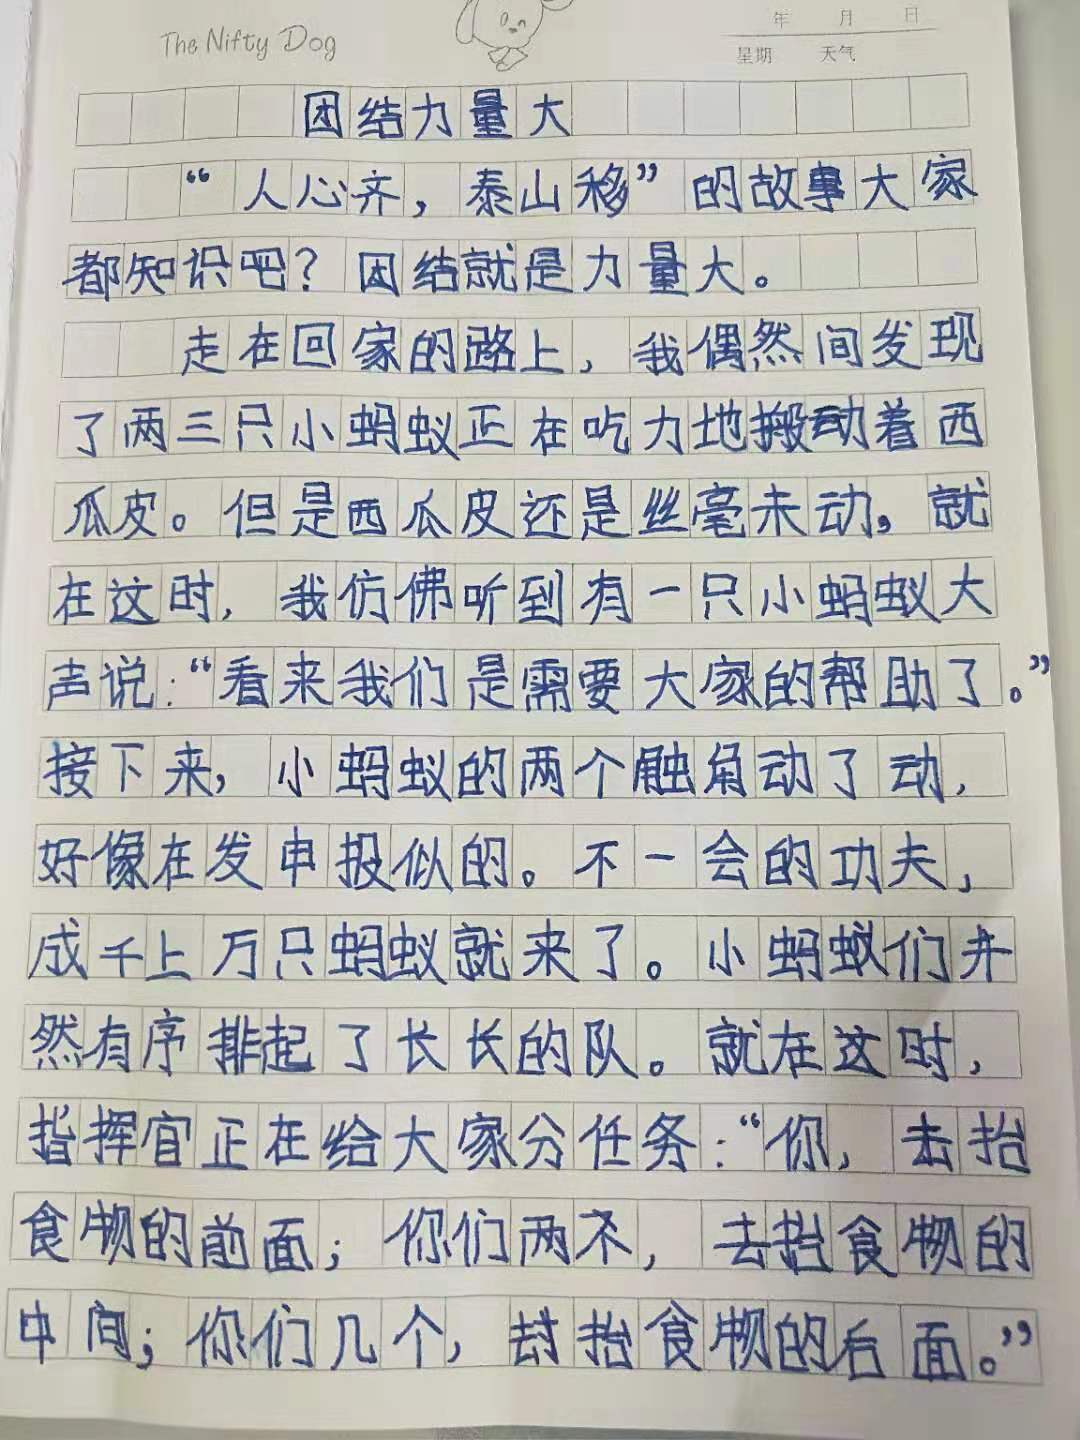 The Nifty Dog
年 月 日
星期 天气
团结力量大
“人心齐，泰山移”的故事大家
都知识吧？团结就是力量大。
走在回家的路上，我偶然间发现
了两三只小蚂蚁正在吃力地搬动着西
瓜皮。但是西瓜皮还是丝毫未动，就
在这时，我仿佛听到有一只小蚂蚁大
声说：“看来我们是需要大家的帮助了。”
接下来，小蚂蚁的两个触角动了动，
好像在发申报似的。不一会的功夫，
成千上万只蚂蚁就来了。小蚂蚁们井
然有序排起了长长的队。就在这时，
指挥官正在给大家分任务：“你，去抬
食物的前面；你们两不，去抬食物的
中间；你们几个，抬食物的后面。”